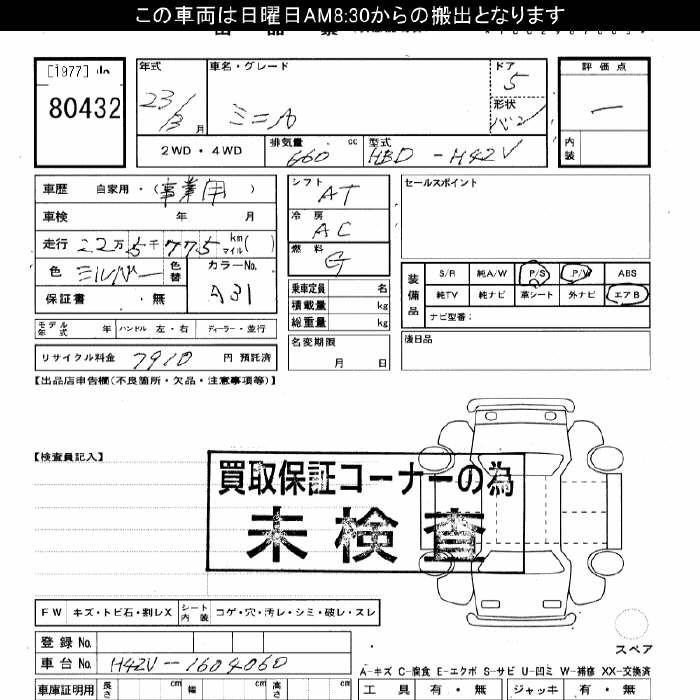 この車両は日曜日AM8:30からの搬出となります
[1977]
80432
年式 23/3 月
車名・グレード ミニカ
ドア 5
形状 バン
評価点 ―
内装
2WD・4WD
排気量 660 cc
型式 HBD-H42V
車歴 自家用・(事業用)
車検 年 月
走行 22万5千775 km マイル( )
色 シルバー 色替
カラーNo. A31
保証書 ・ 無
モデル年式 年 ハンドル 左・右 ディーラー・並行
リサイクル料金 7910 円 預託済
シフト AT
冷房 AC
燃料 G
乗車定員 名
積載量 kg
総重量 kg
名変期限 月 日
セールスポイント
装備品 S/R 純A/W P/S P/W ABS
純TV 純ナビ 革シート 外ナビ エアB
ナビ型番:
後日品
【出品店申告欄(不良箇所・欠品・注意事項等)】
【検査員記入】
買取保証コーナーの為
未検査
FW キズ・トビ石・割レX シート内装 コゲ・穴・汚レ・シミ・破レ・スレ
登録No.
車台No. H42V-1604060
スペア
A-キズ C-腐食 E-エクボ S-サビ U-凹ミ W-補修 XX-交換済
車庫証明用 長さ cm 幅 cm 高さ cm
工具 有・無 ジャッキ 有・無